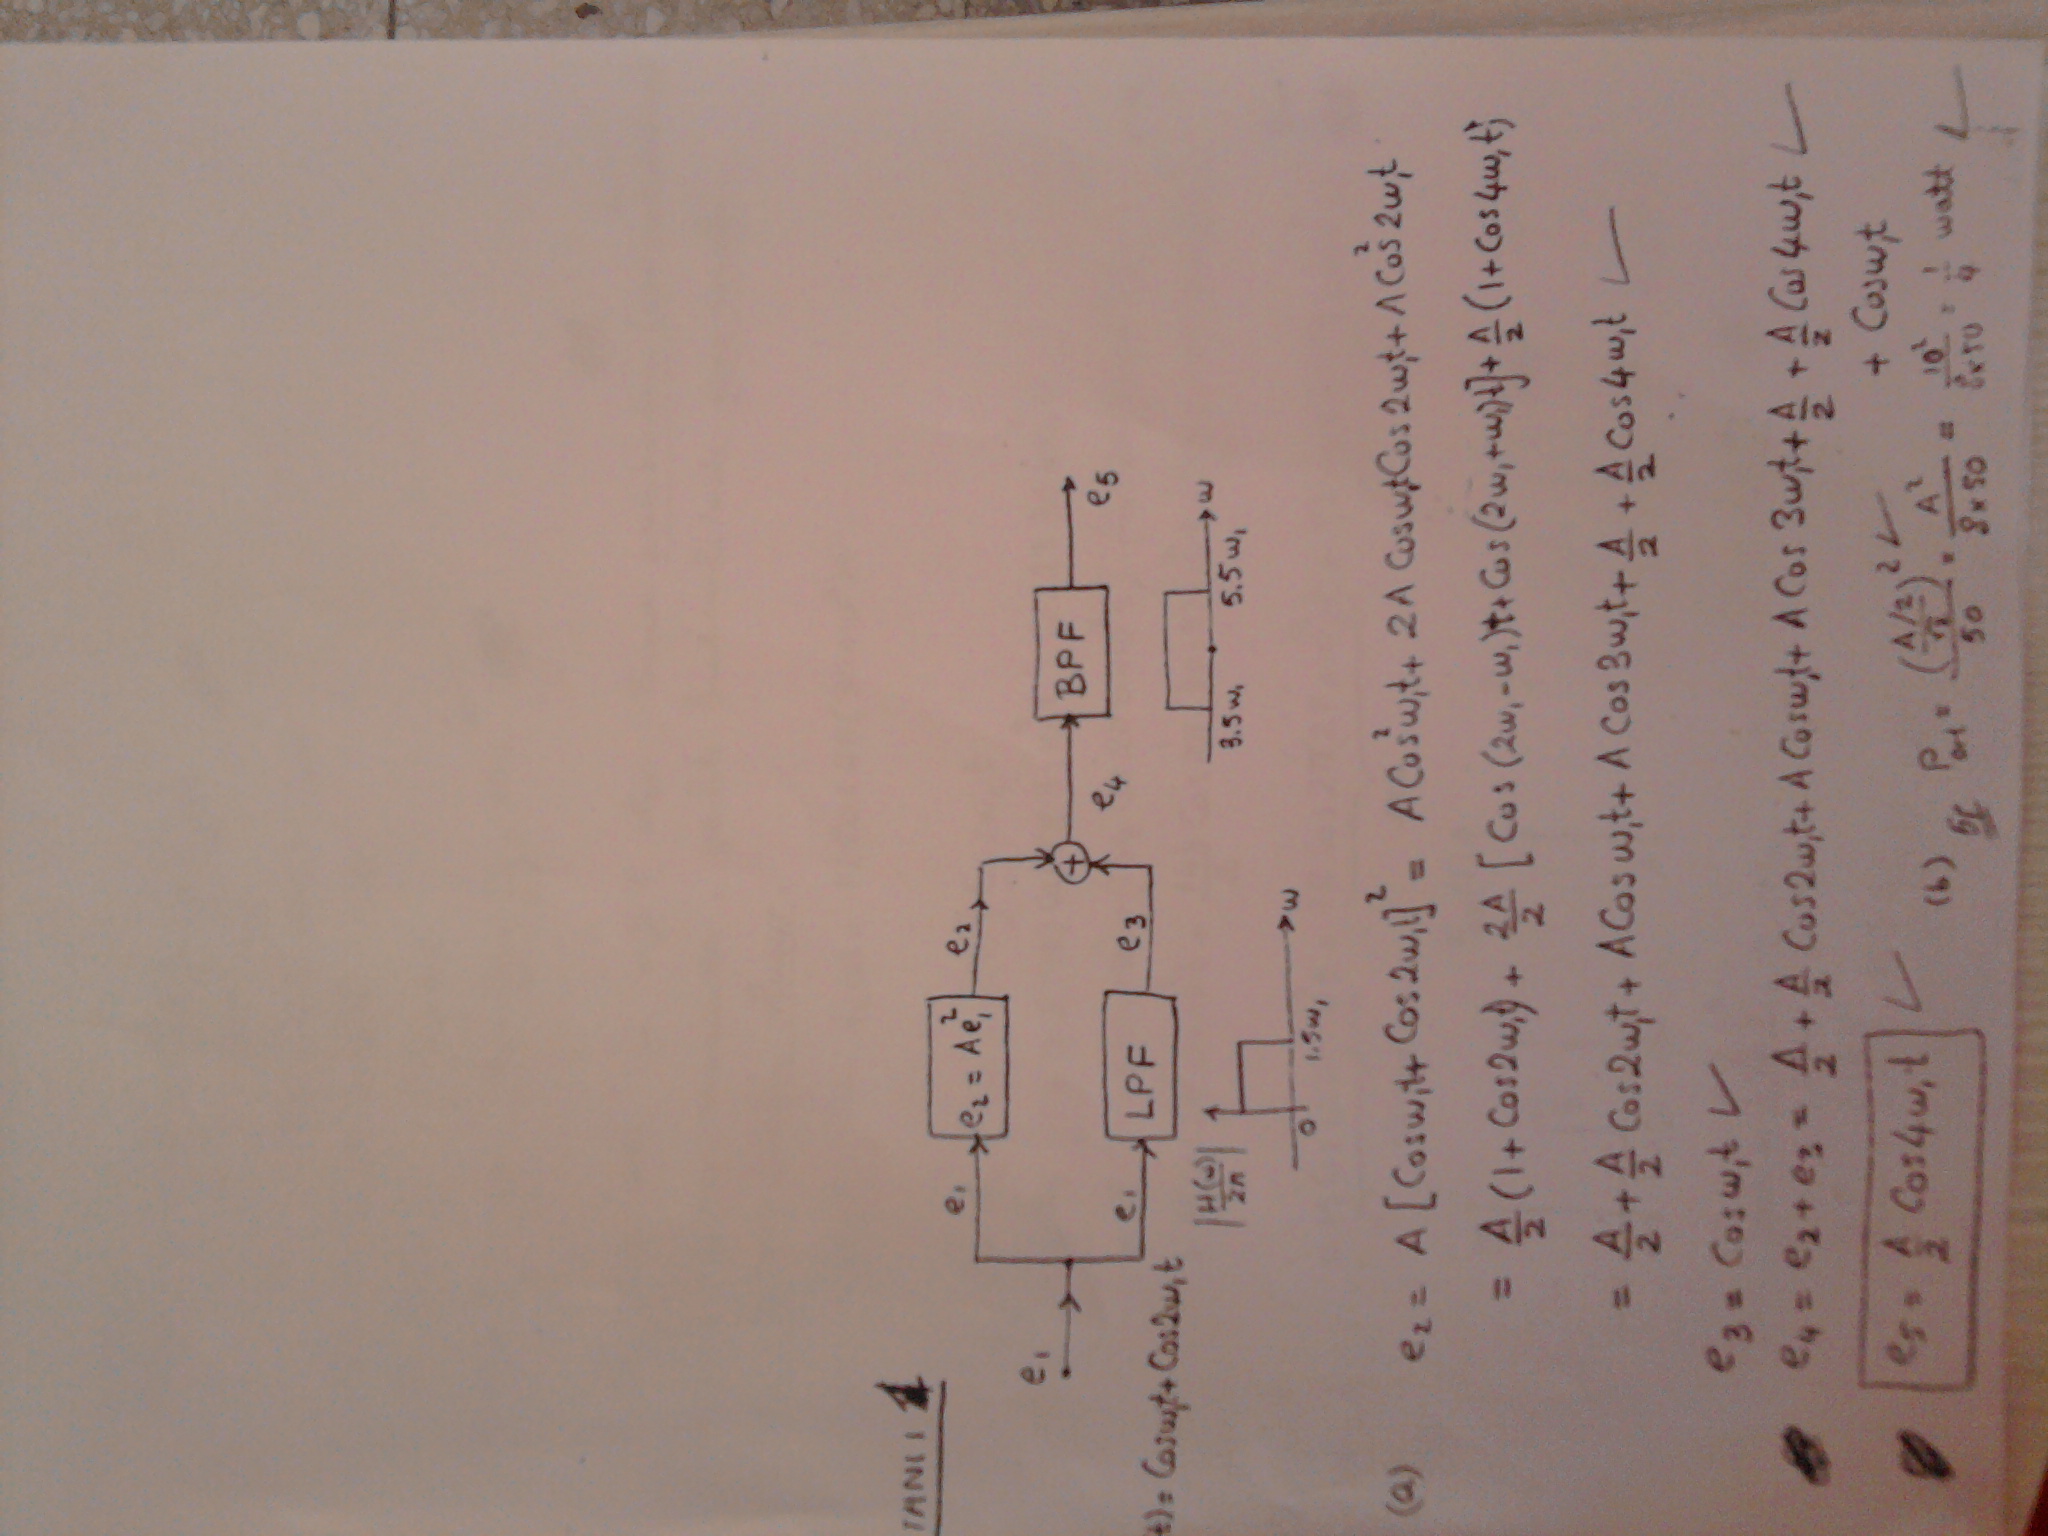 YANIT 1
e₁
e₁
e₂ = Ae₁²
e₂
e₁
LPF
e₃
+
e₄
BPF
e₅
t) = Cosω₁t + Cos2ω₁t
|H(ω)/2π|
0
1.5ω₁
ω
3.5ω₁
5.5ω₁
ω
(a) e₂ = A [Cosω₁t + Cos2ω₁t]² = ACos²ω₁t + 2A Cosω₁t Cos2ω₁t + ACos²2ω₁t
= A/2 (1 + Cos2ω₁t) + 2A/2 [Cos(2ω₁-ω₁)t + Cos(2ω₁+ω₁)t] + A/2 (1 + Cos4ω₁t)
= A/2 + A/2 Cos2ω₁t + ACosω₁t + ACos3ω₁t + A/2 + A/2 Cos4ω₁t ✓
e₃ = Cosω₁t ✓
e₄ = e₂ + e₃ = A/2 + A/2 Cos2ω₁t + ACosω₁t + ACos3ω₁t + A/2 + A/2 Cos4ω₁t ✓
+ Cosω₁t
e₅ = A/2 Cos4ω₁t ✓
(b) P = ((A/2)/√2)²/50 = A²/8x50 = 10²/8x50 = 1/4 watt ✓